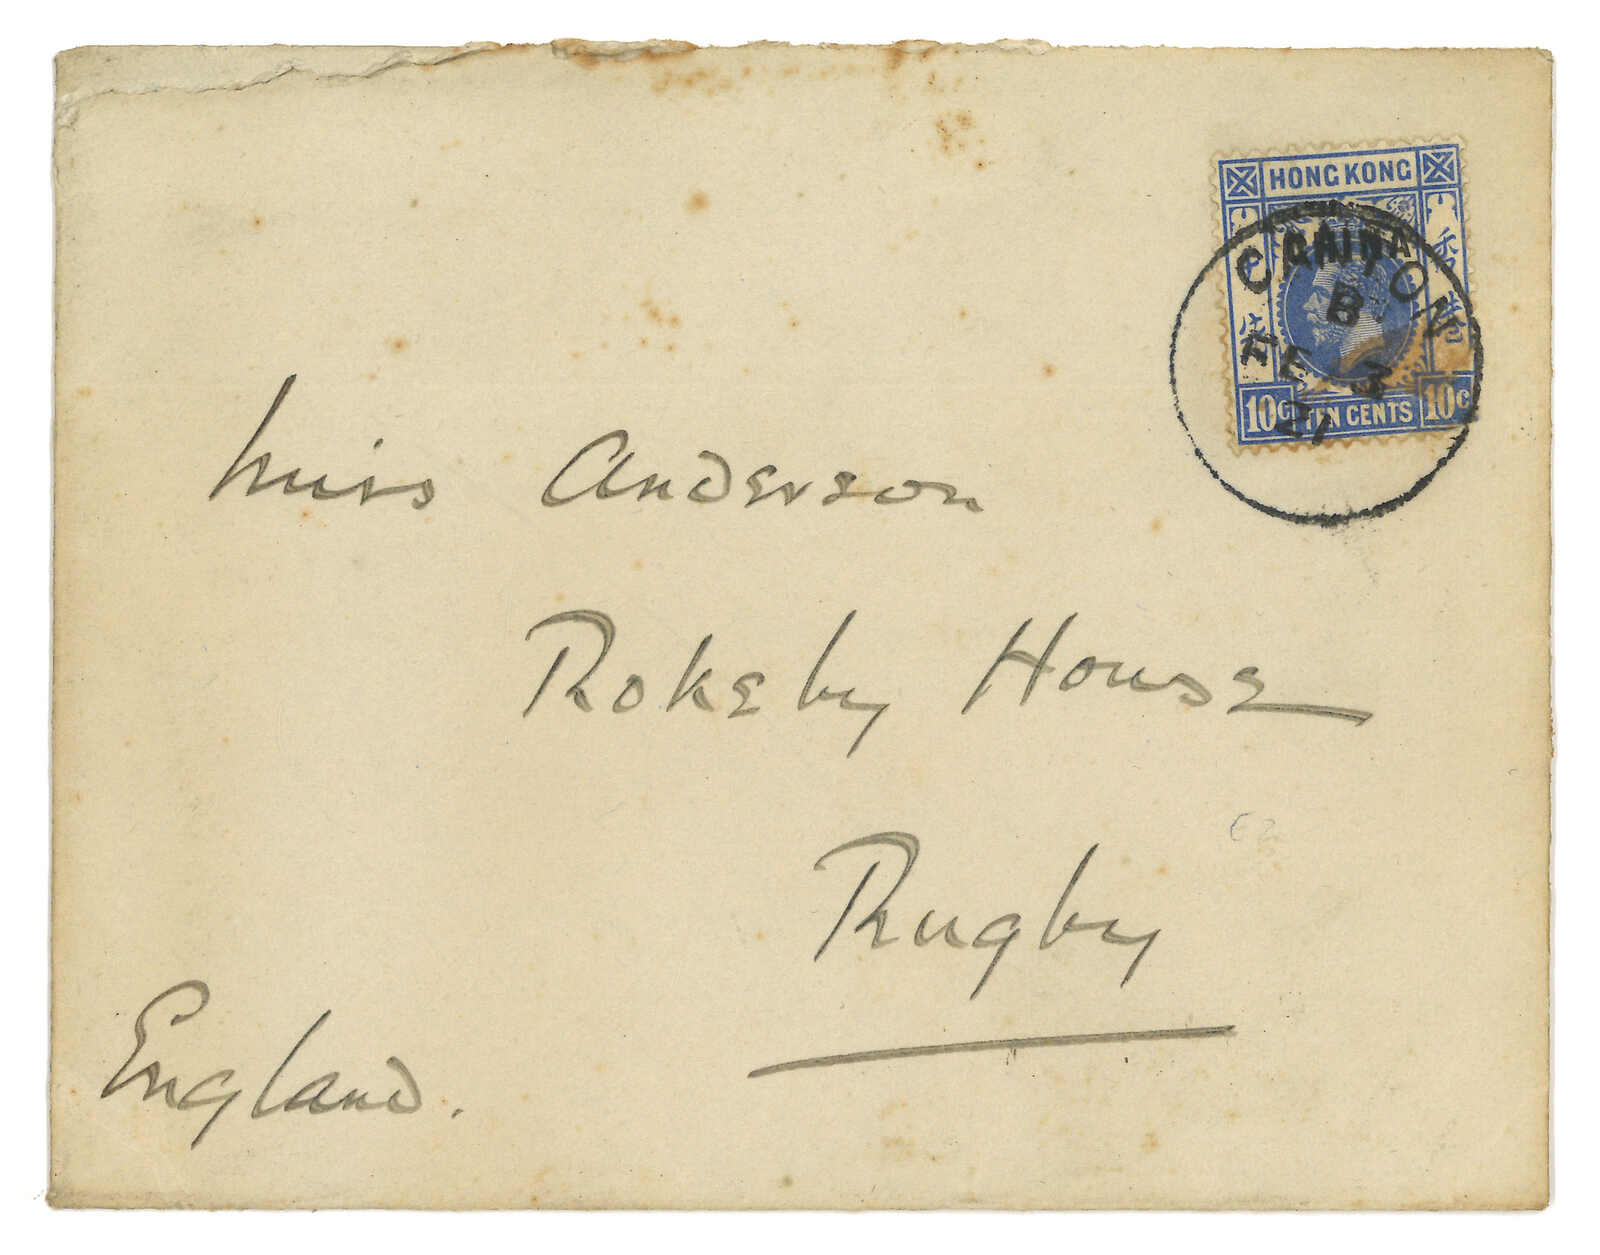 HONG KONG
香港
CHINA
CANTON
B
FE 3
21
10c TEN CENTS 10c
Miss Anderson
Rokeby House
Rugby
England.